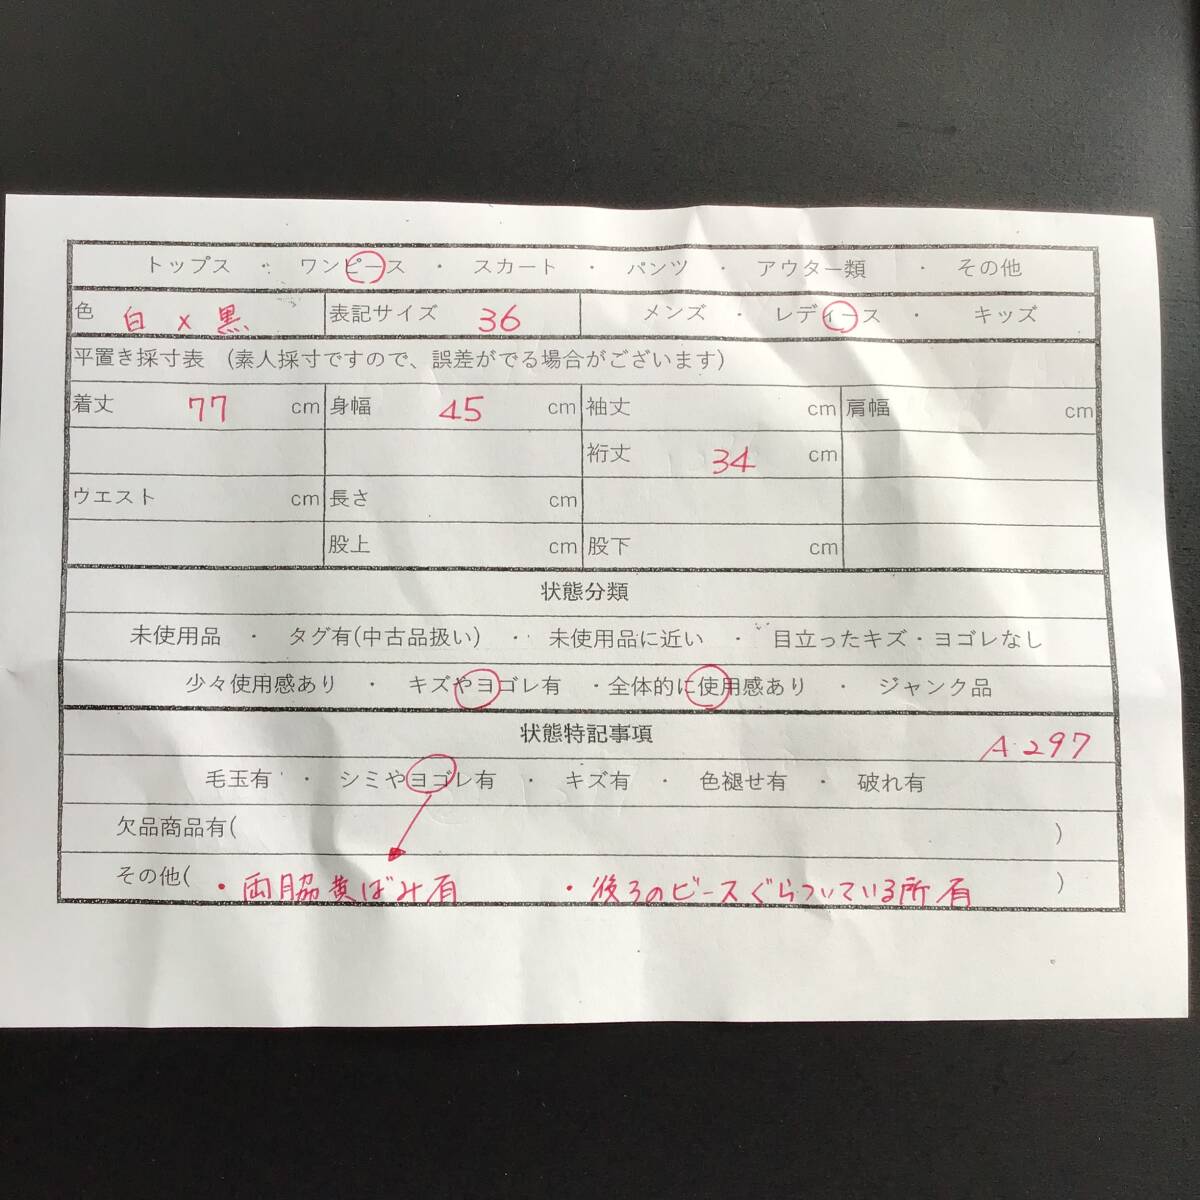 トップス ・ ワンピース ・ スカート ・ パンツ ・ アウター類 ・ その他
色 白 x 黒 表記サイズ 36 メンズ ・ レディース ・ キッズ
平置き採寸表 (素人採寸ですので、誤差がでる場合がございます)
着丈 77 cm 身幅 45 cm 袖丈 cm 肩幅 cm
裄丈 34 cm
ウエスト cm 長さ cm
股上 cm 股下 cm
状態分類
未使用品 ・ タグ有(中古品扱い) ・ 未使用品に近い ・ 目立ったキズ・ヨゴレなし
少々使用感あり ・ キズやヨゴレ有 ・全体的に使用感あり ・ ジャンク品
状態特記事項 A-297
毛玉有 ・ シミやヨゴレ有 ・ キズ有 ・ 色褪せ有 ・ 破れ有
欠品商品有( )
その他( ・両脇黄ばみ有 ・後ろのビースぐらついている所有 )